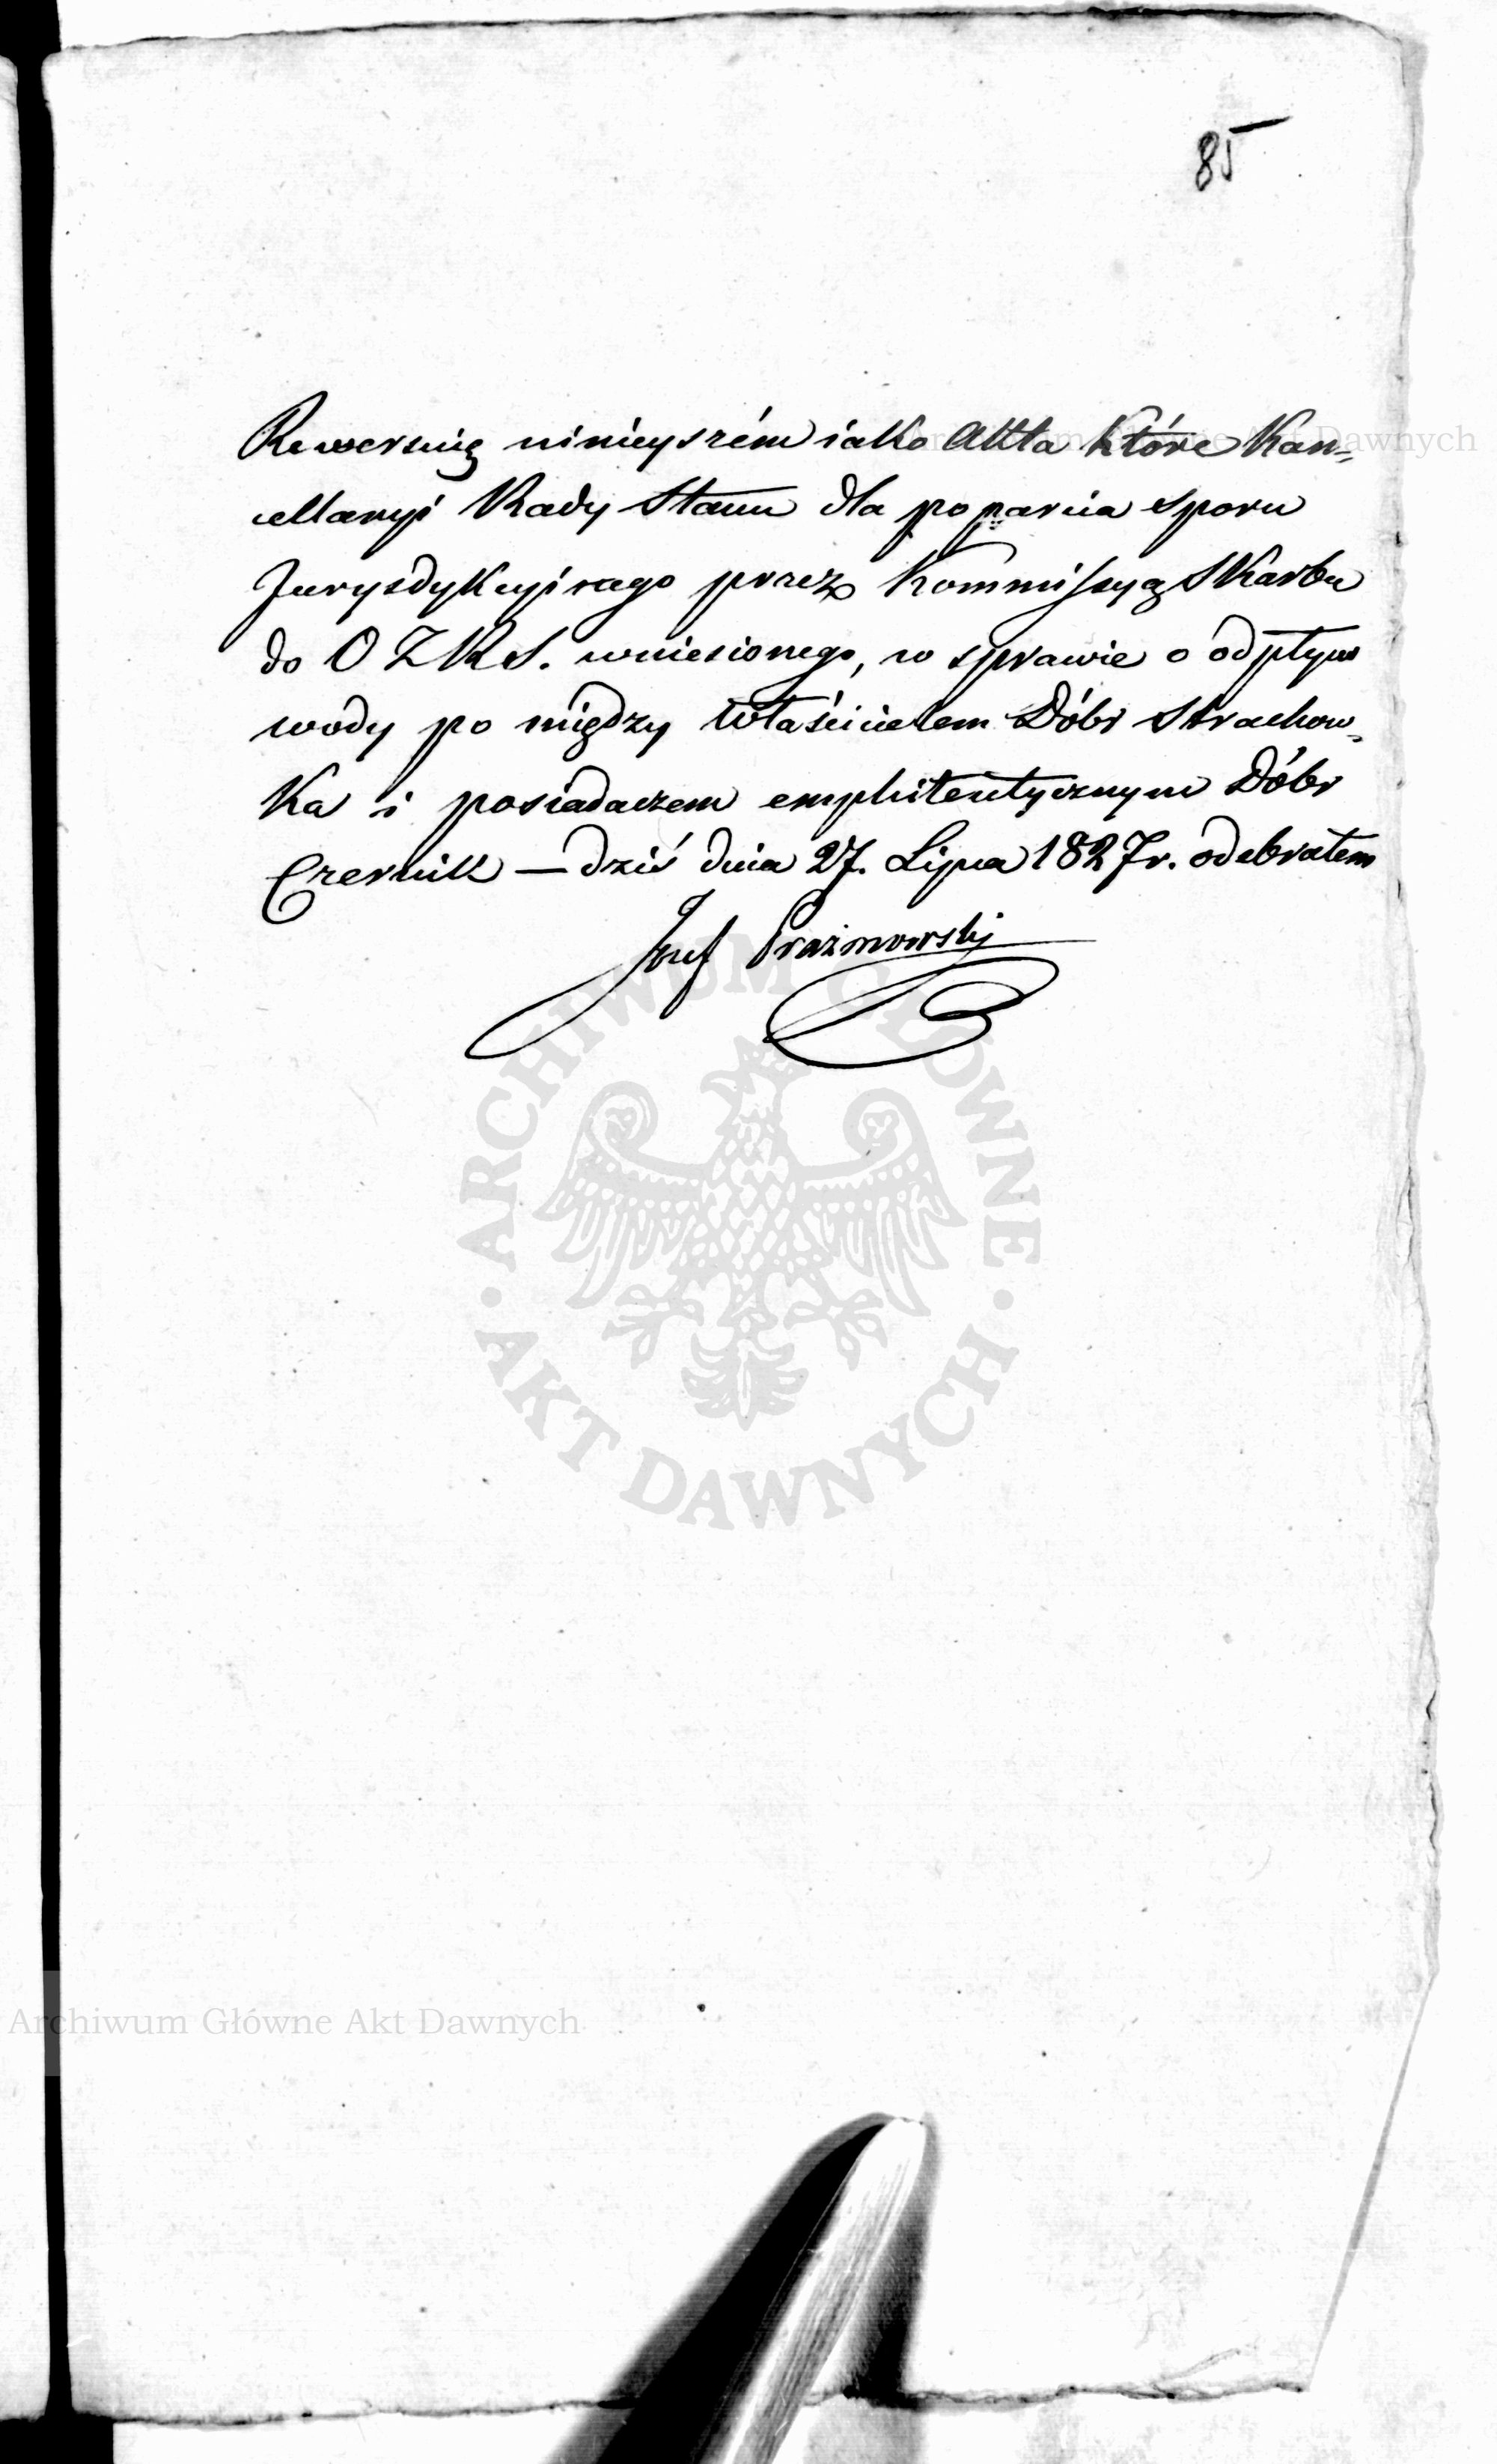 85
Rewersuię ninieyszém iako Akta które Kan=
cellaryi Rady Stanu dla poparcia sporu
Jurysdykcyinego przez Kommissyą Skarbu
do O Z R S. wniesionego, w sprawie o odpływ
wody po między Właścicielem Dóbr Strachow=
ka i posiadaczem emphiteutycznym Dóbr
Czernik — dziś dnia 27. Lipca 1827 r. odebrałem
Józef Prażmowski
Archiwum Główne Akt Dawnych
ARCHIWUM GŁÓWNE
AKT DAWNYCH
Archiwum Główne Akt Dawnych